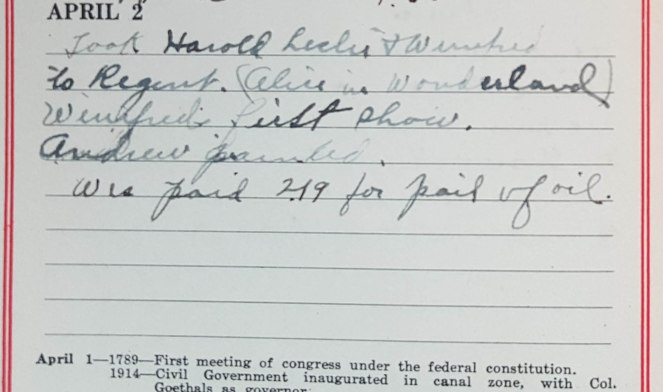 APRIL 2
Took Harold Leslie & Winnifred
to Regent. (Alice in Wonderland)
Winnifred's first show.
Andrew painted.
We paid 2.19 for pail of oil.
April 1—1789—First meeting of congress under the federal constitution.
1914—Civil Government inaugurated in canal zone, with Col.
Goethals as governor.